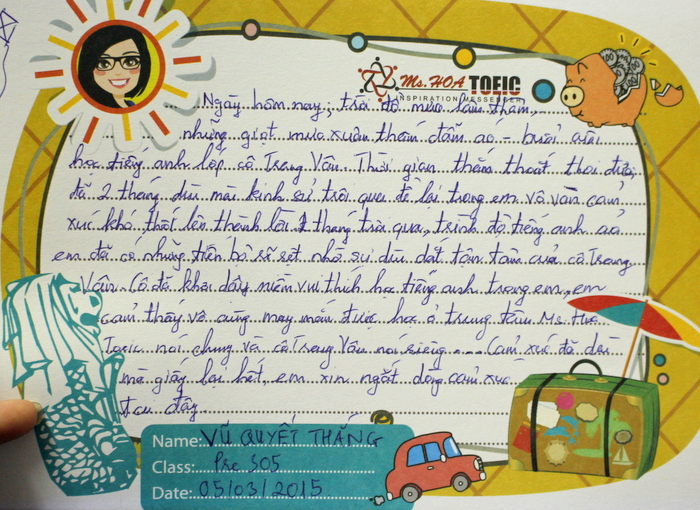 Ms.HOA TOEIC
INSPIRATION MESSENGER
Ngày hôm nay, trời đổ mưa lâm thâm,
những giọt mưa xuân thấm đẫm áo - buổi cuối
học tiếng anh lớp cô Trang Vân. Thời gian thấm thoát thoi đưa,
đã 2 tháng dùi mài kinh sử trôi qua để lại trong em vô vàn cảm
xúc khó thốt lên thành lời. 2 tháng trôi qua, trình độ tiếng anh của
em đã có những tiến bộ rõ rệt nhờ sự dìu dắt tận tâm của cô Trang
Vân. Cô đã khơi dậy niềm vui thích học tiếng anh trong em, em
cảm thấy vô cùng may mắn được học ở trung tâm Ms. Hoa
Toeic nói chung và cô Trang Vân nói riêng .... Cảm xúc đã dài
mà giấy lại hết, em xin ngắt dòng cảm xúc
tại đây
Name: VŨ QUYẾT THẮNG
Class: Pre 305
Date: 05/03/2015